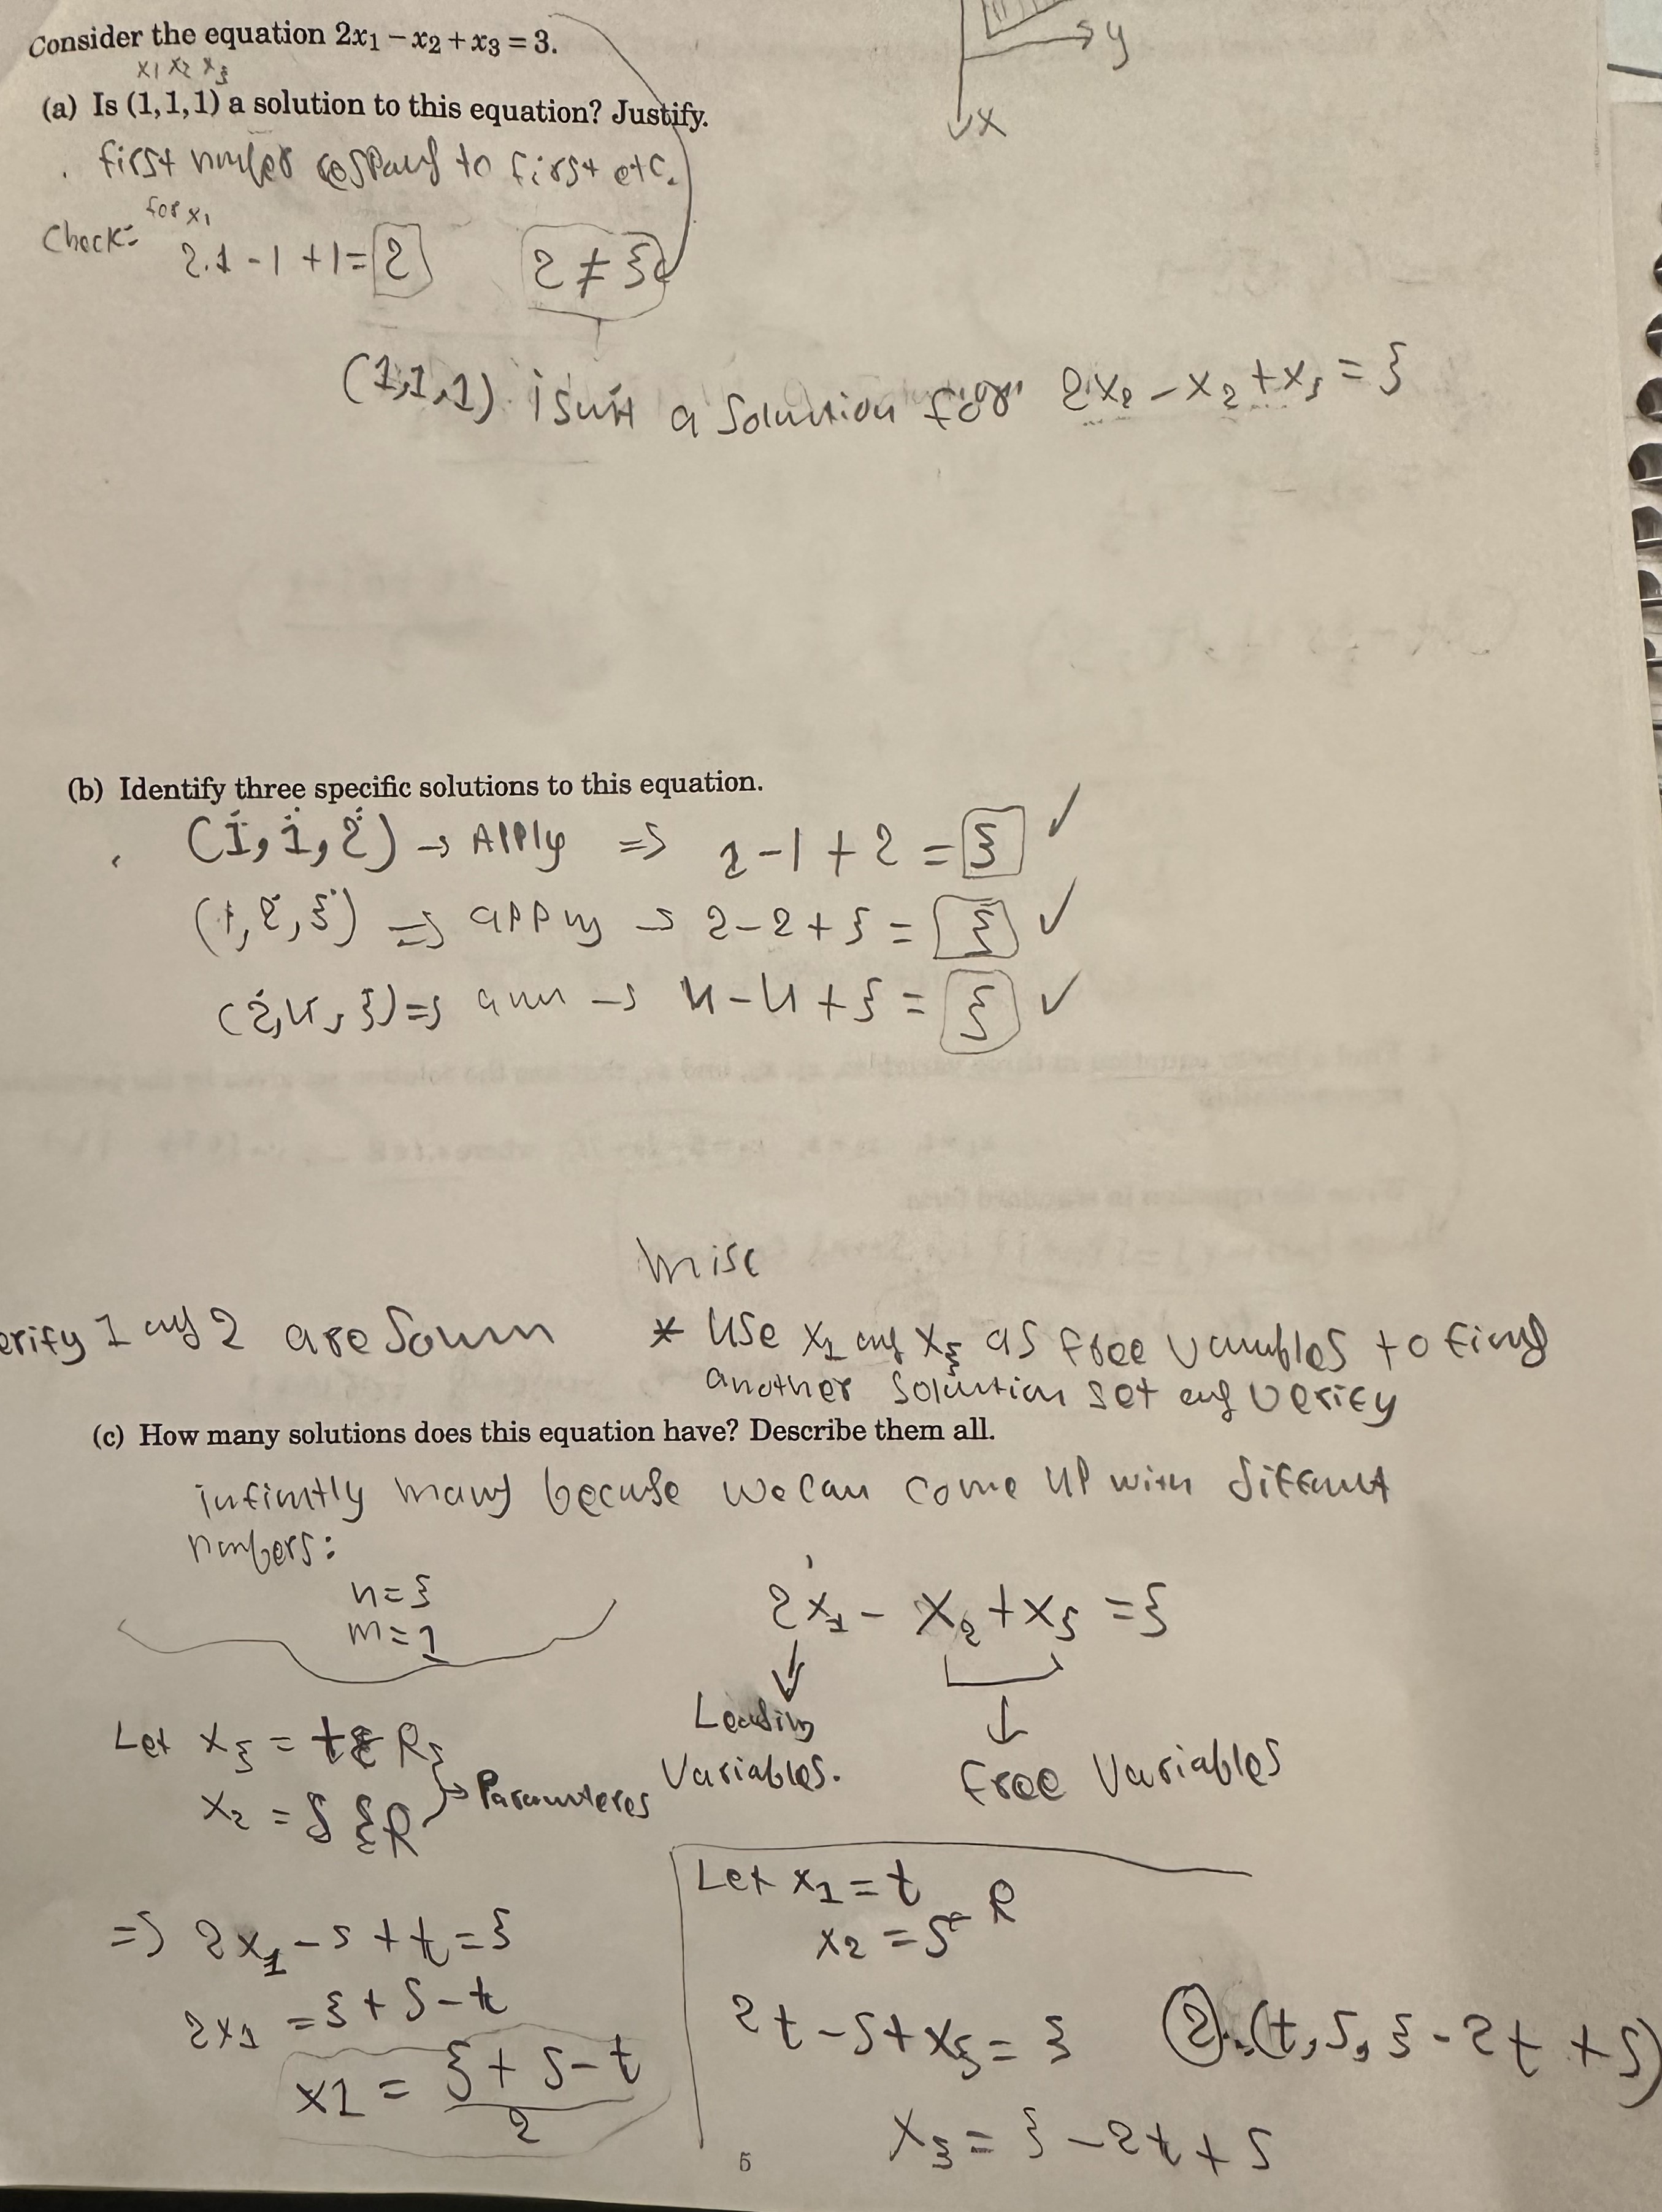 Consider the equation 2x₁ − x₂ + x₃ = 3.
x₁ x₂ x₃
(a) Is (1, 1, 1) a solution to this equation? Justify.
first number to first etc.
for x₁
Check:
2.1 - 1 + 1 = 2
2 ≠ 3
y
x
(1,1,1) isn't a solution for 2x₂ - x₂ + x₃ = 3
(b) Identify three specific solutions to this equation.
(1, 1, 2) → Apply ⇒ 2 - 1 + 2 = 3 ✓
(1, 2, 3) ⇒ apply → 2 - 2 + 3 = 3 ✓
(2, 4, 3) ⇒ → 4 - 4 + 3 = 3 ✓
misc
erify 1 and 2 are
* Use x₁ and x₃ as free variables to find
another solution set and verify
(c) How many solutions does this equation have? Describe them all.
infinitly many becuse we can come up with diffrent
numbers:
n = 3
m = 1
2x₁ - x₂ + x₃ = 3
Leading
Variables.
free Variables
Let x₃ = t ∈ R
x₂ = s ∈ R
Parameteres
⇒ 2x₁ - s + t = 3
2x₁ = 3 + s - t
x1 = 3 + s - t
2
Let x₁ = t
x₂ = s ∈ R
2t - s + x₃ = 3
② : (t, s, 3 - 2t + s)
x₃ = 3 - 2t + s
5